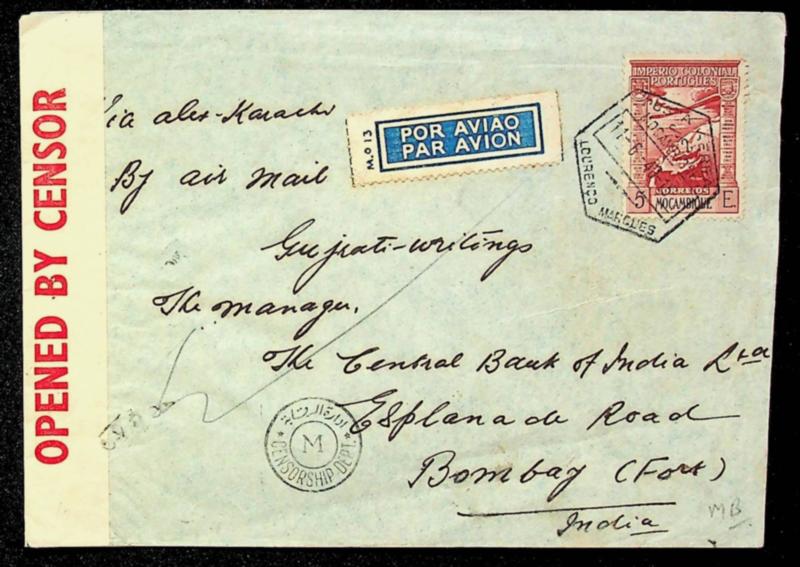 OPENED BY CENSOR
Via alex-Karachi
By air mail
M.O 13
POR AVIAO
PAR AVION
IMPERIO COLONIAL
PORTUGUÊS
CORREIOS
5 MOÇAMBIQUE E.
LOURENÇO MARQUES
Gujrati-writings
The manager,
The Central Bank of India Ltd
Esplanade Road
Bombay (Fort)
India
M
CENSORSHIP.DEPT.
MB